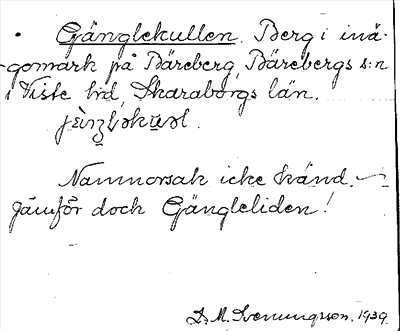 • Gänglekullen. Berg i inä-
gomark på Bäreberg, Bärebergs s:n
i Viste hd, Skaraborgs län.
Namnorsak icke känd.
Jämför dock Gängleliden!
D. M. Svenungsson. 1939.